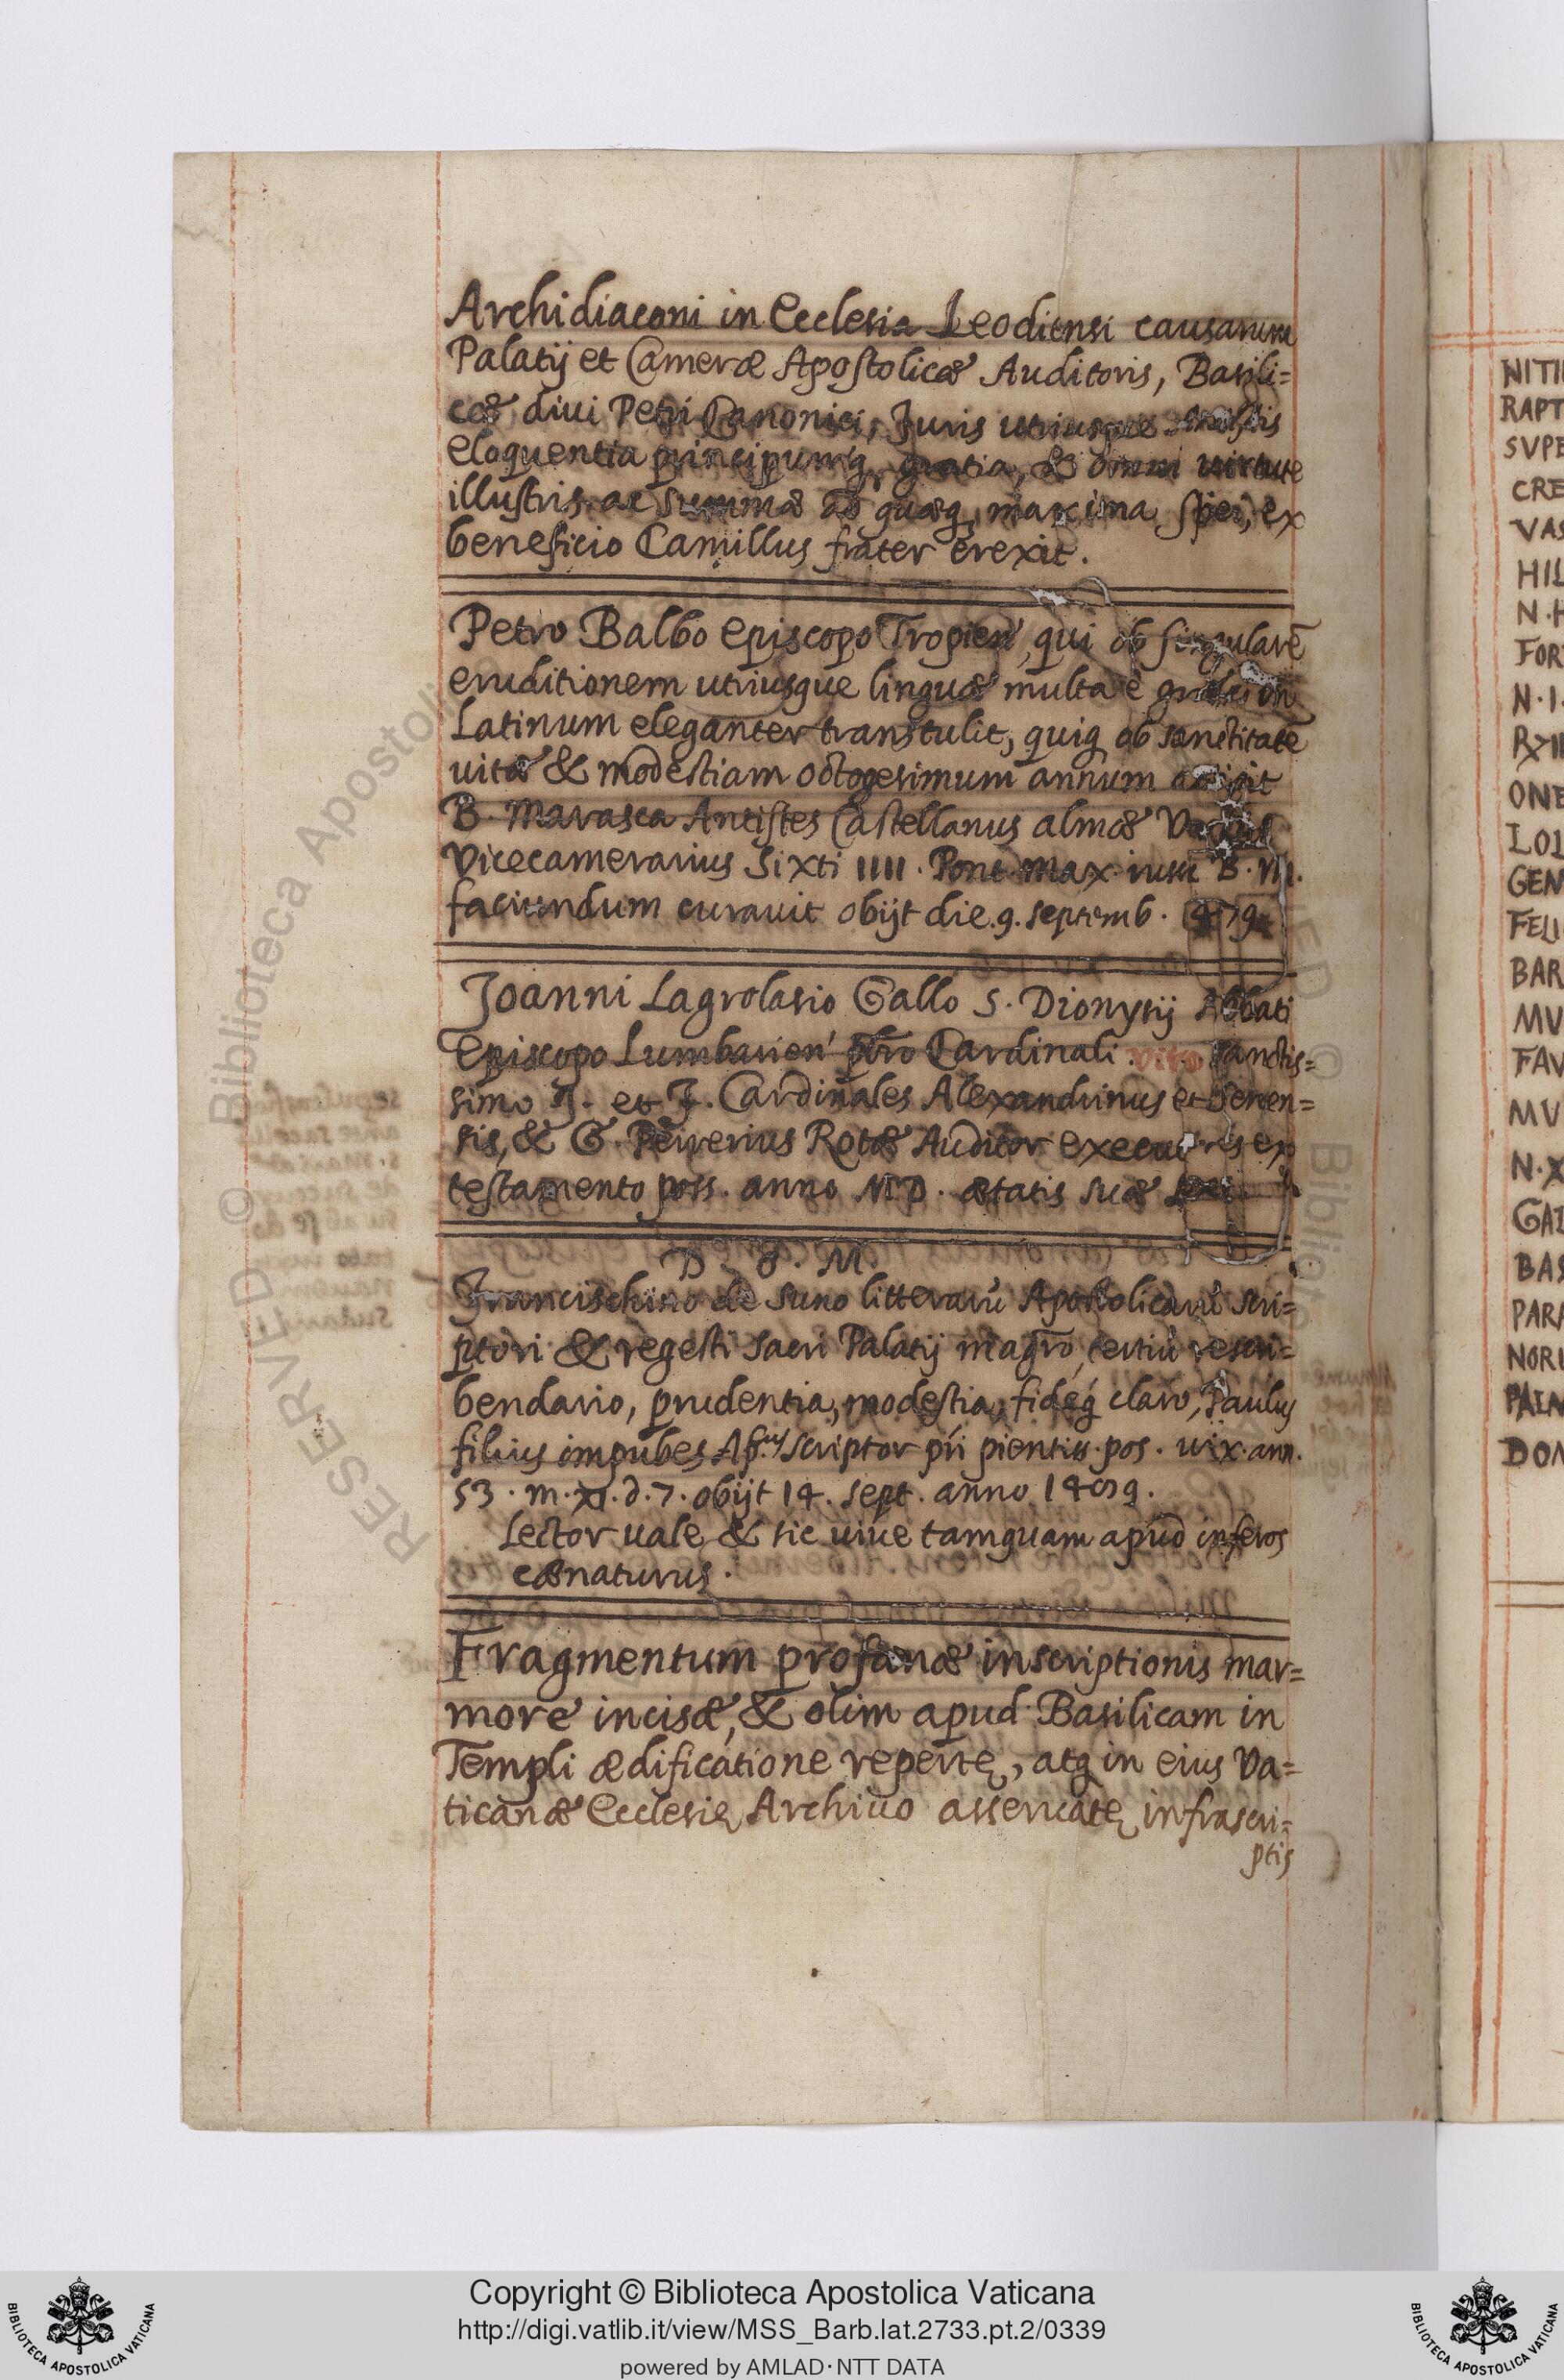 Archidiaconi in Ecclesia Leodiensi causarum
Palatij et Cameræ Apostolicæ Auditoris, Basili=
cæ diui Petri Canonici, Juris utriusque
eloquentia principumq, gratia, & omni uirtute
illustris, ac summæ ad quæq, maxima spei, ex
beneficio Camillus frater erexit.
Petro Balbo Episcopo Tropien', qui ob singularē
eruditionem utriusque linguæ multa è
Latinum eleganter transtulit, quiq ob sanctitatē
uitæ & modestiam octogesimum annum
B. Marasca Antistes Castellanus almæ
Vicecamerarius Sixti IIII. Pont. Max. iussu B. M.
faciundum curauit obijt die. 9. septemb. 1479
Joanni Lagrolasio Gallo S. Dionysij Abbati
Episcopo Lumbarien' pbro Cardinali. Viro sanctis=
simo J. et F. Cardinales Alexandrinus et Senen=
sis, & G. Rotæ Auditor ex
testamento poss. anno M.D. ætatis suæ
D. O. M.
Francischino de Suno litterarū Apostolicarū scri=
ptori & regesti sacri Palatij magro, tertiū rescri=
bendario, prudentia, modestia, fideq claro, Paulus
filius impubes Ap.cus scriptor pri pientiss. pos. uix. ann.
53. m. XI. d. 7. obijt 14. sept. anno
Lector uale & sic uiue tamquam apud inferos
cænaturus.
Fragmentum profanæ inscriptionis mar=
more incisæ, & olim apud Basilicam in
Templi ædificatione repertę, atq in eius Va=
ticanæ Ecclesię Archiuo asseruatę infrascri=
ptis
NITI
RAPT
SVPE
CRE
VAS
HIL
N. H
FOR
N. I.
ONE
LOL
GEN
FELI
BAR
MV
FAV
MV
N. X
GAI
BAS
PARA
NORI
DON
RESERVED © Biblioteca Apostolica
Copyright © Biblioteca Apostolica Vaticana
http://digi.vatlib.it/view/MSS_Barb.lat.2733.pt.2/0339
powered by AMLAD·NTT DATA
BIBLIOTECA APOSTOLICA VATICANA
BIBLIOTECA APOSTOLICA VATICANA